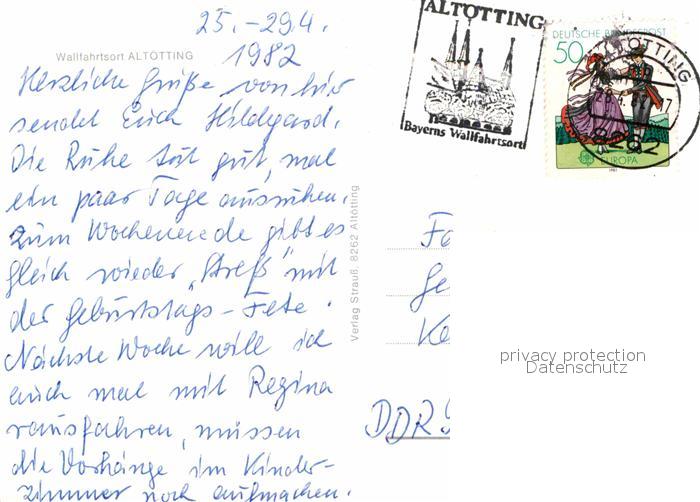 25.-29.4.
1982
Wallfahrtsort ALTÖTTING
Herzliche Grüße von hier
sendet Euch Hildegard.
Die Ruhe tut gut, mal
ein paar Tage ausruhen.
Zum Wochenende gibt es
gleich wieder „Streß" mit
der Geburtstags-Fete.
Nächste Woche will ich
auch mal mit Regina
rausfahren, müssen
die Vorhänge im Kinder-
zimmer noch aufmachen.
Verlag Strauß, 8262 Altötting
ALTÖTTING
Bayerns Wallfahrtsort
DEUTSCHE BUNDESPOST
50
EUROPA
1981
ALTÖTTING
8262
Fa
Ge
Ke
DDR
privacy protection
Datenschutz